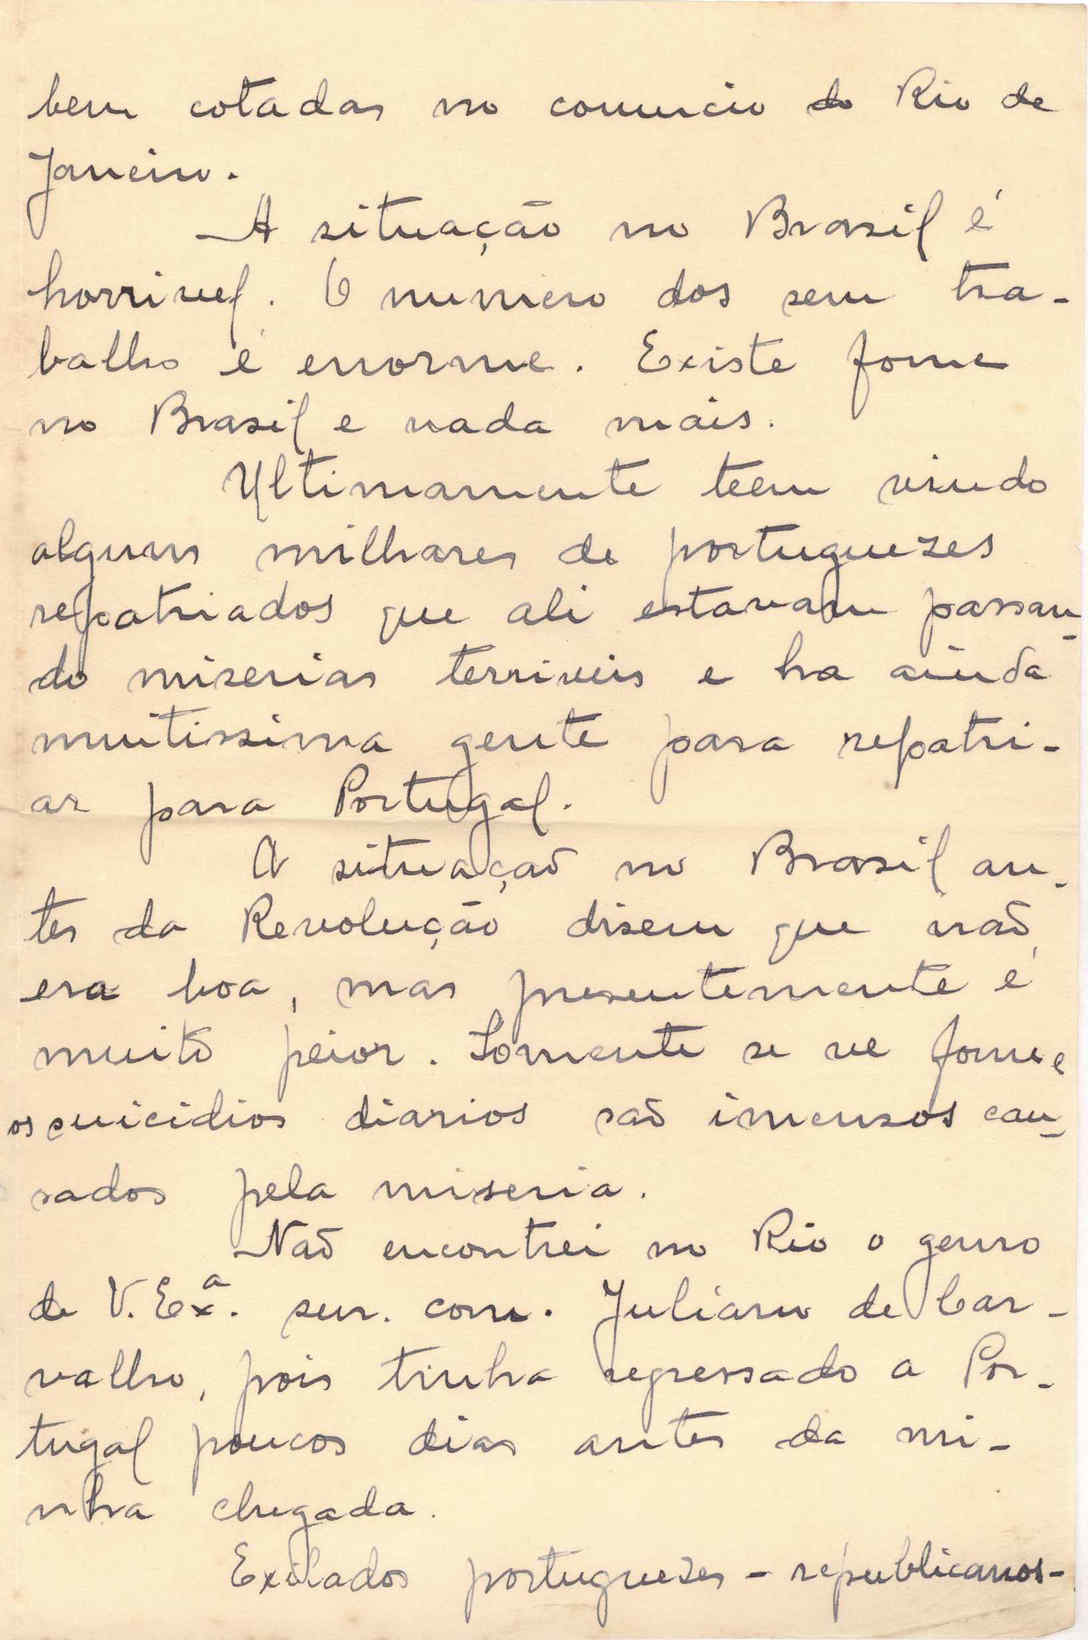 bem cotadas no comercio do Rio de
Janeiro.
A situação no Brasil é
horrivel. O numero dos sem tra-
balho é enorme. Existe fome
no Brasil e nada mais.
Ultimamente teem vindo
alguns milhares de portuguezes
repatriados que ali estavam passan-
do miserias terriveis e ha ainda
muitissima gente para repatri-
ar para Portugal.
A situação no Brasil an-
tes da Revolução disem que não
era boa, mas presentemente é
muito peior. Somente se ve fome e
os suicidios diarios são imensos cau-
sados pela miseria.
Não encontrei no Rio o genro
de V. Exª. snr. com. Juliano de Car-
valho, pois tinha regressado a Por-
tugal poucos dias antes da mi-
nha chegada.
Exilados portuguezes - républicanos -